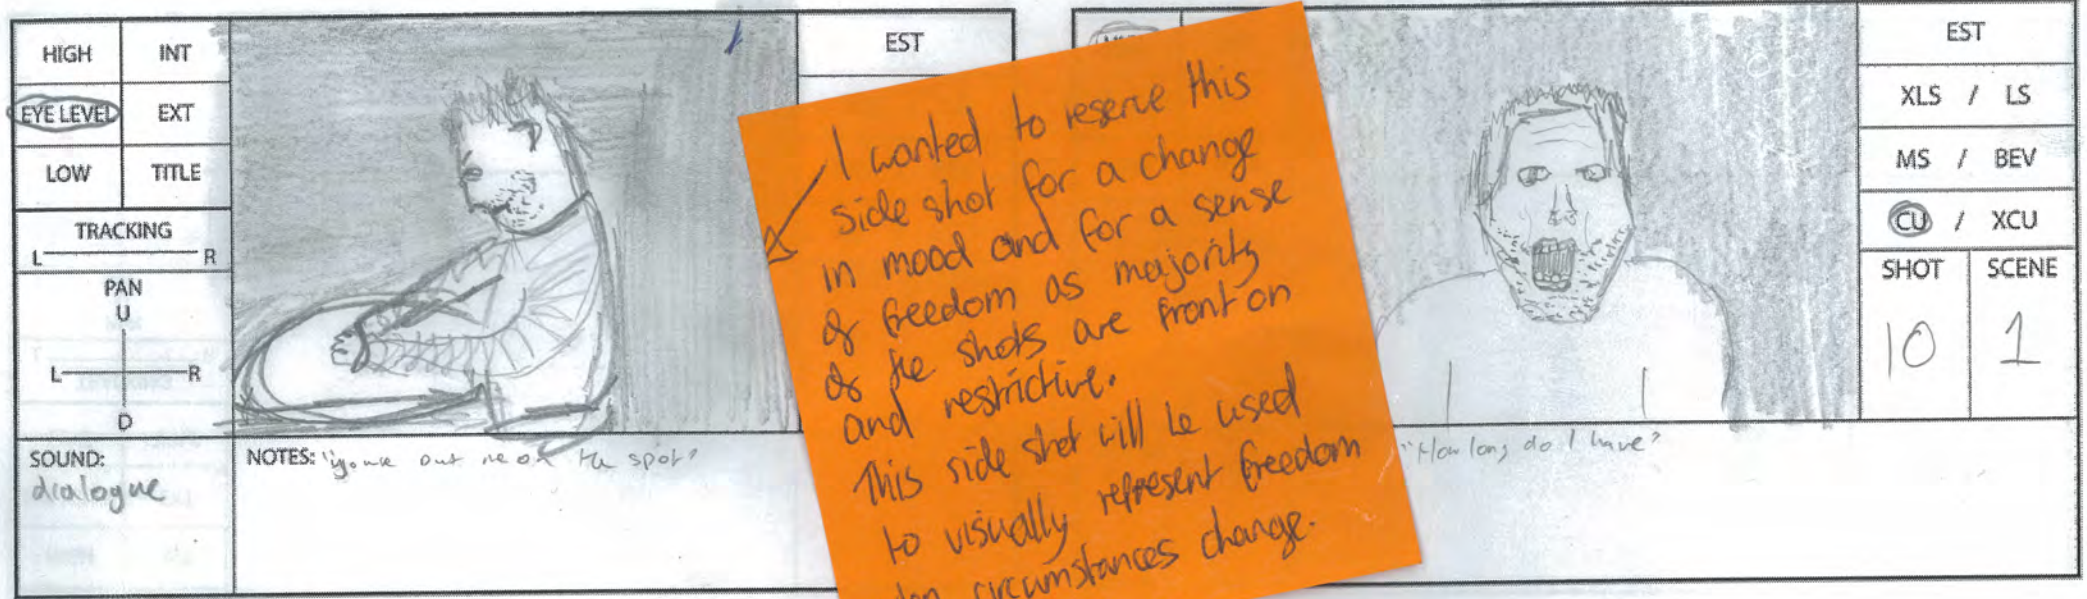 HIGH
INT
EYE LEVEL
EXT
LOW
TITLE
TRACKING
L R
PAN
U
L R
D
EST
SOUND:
dialogue
NOTES: me on the spot"
I wanted to reserve this
side shot for a change
in mood and for a sense
of freedom as majority
of the shots are front on
and restrictive.
This side shot will be used
to visually represent freedom
circumstances change.
EST
XLS / LS
MS / BEV
CU / XCU
SHOT
SCENE
10
1
"How long do I have?